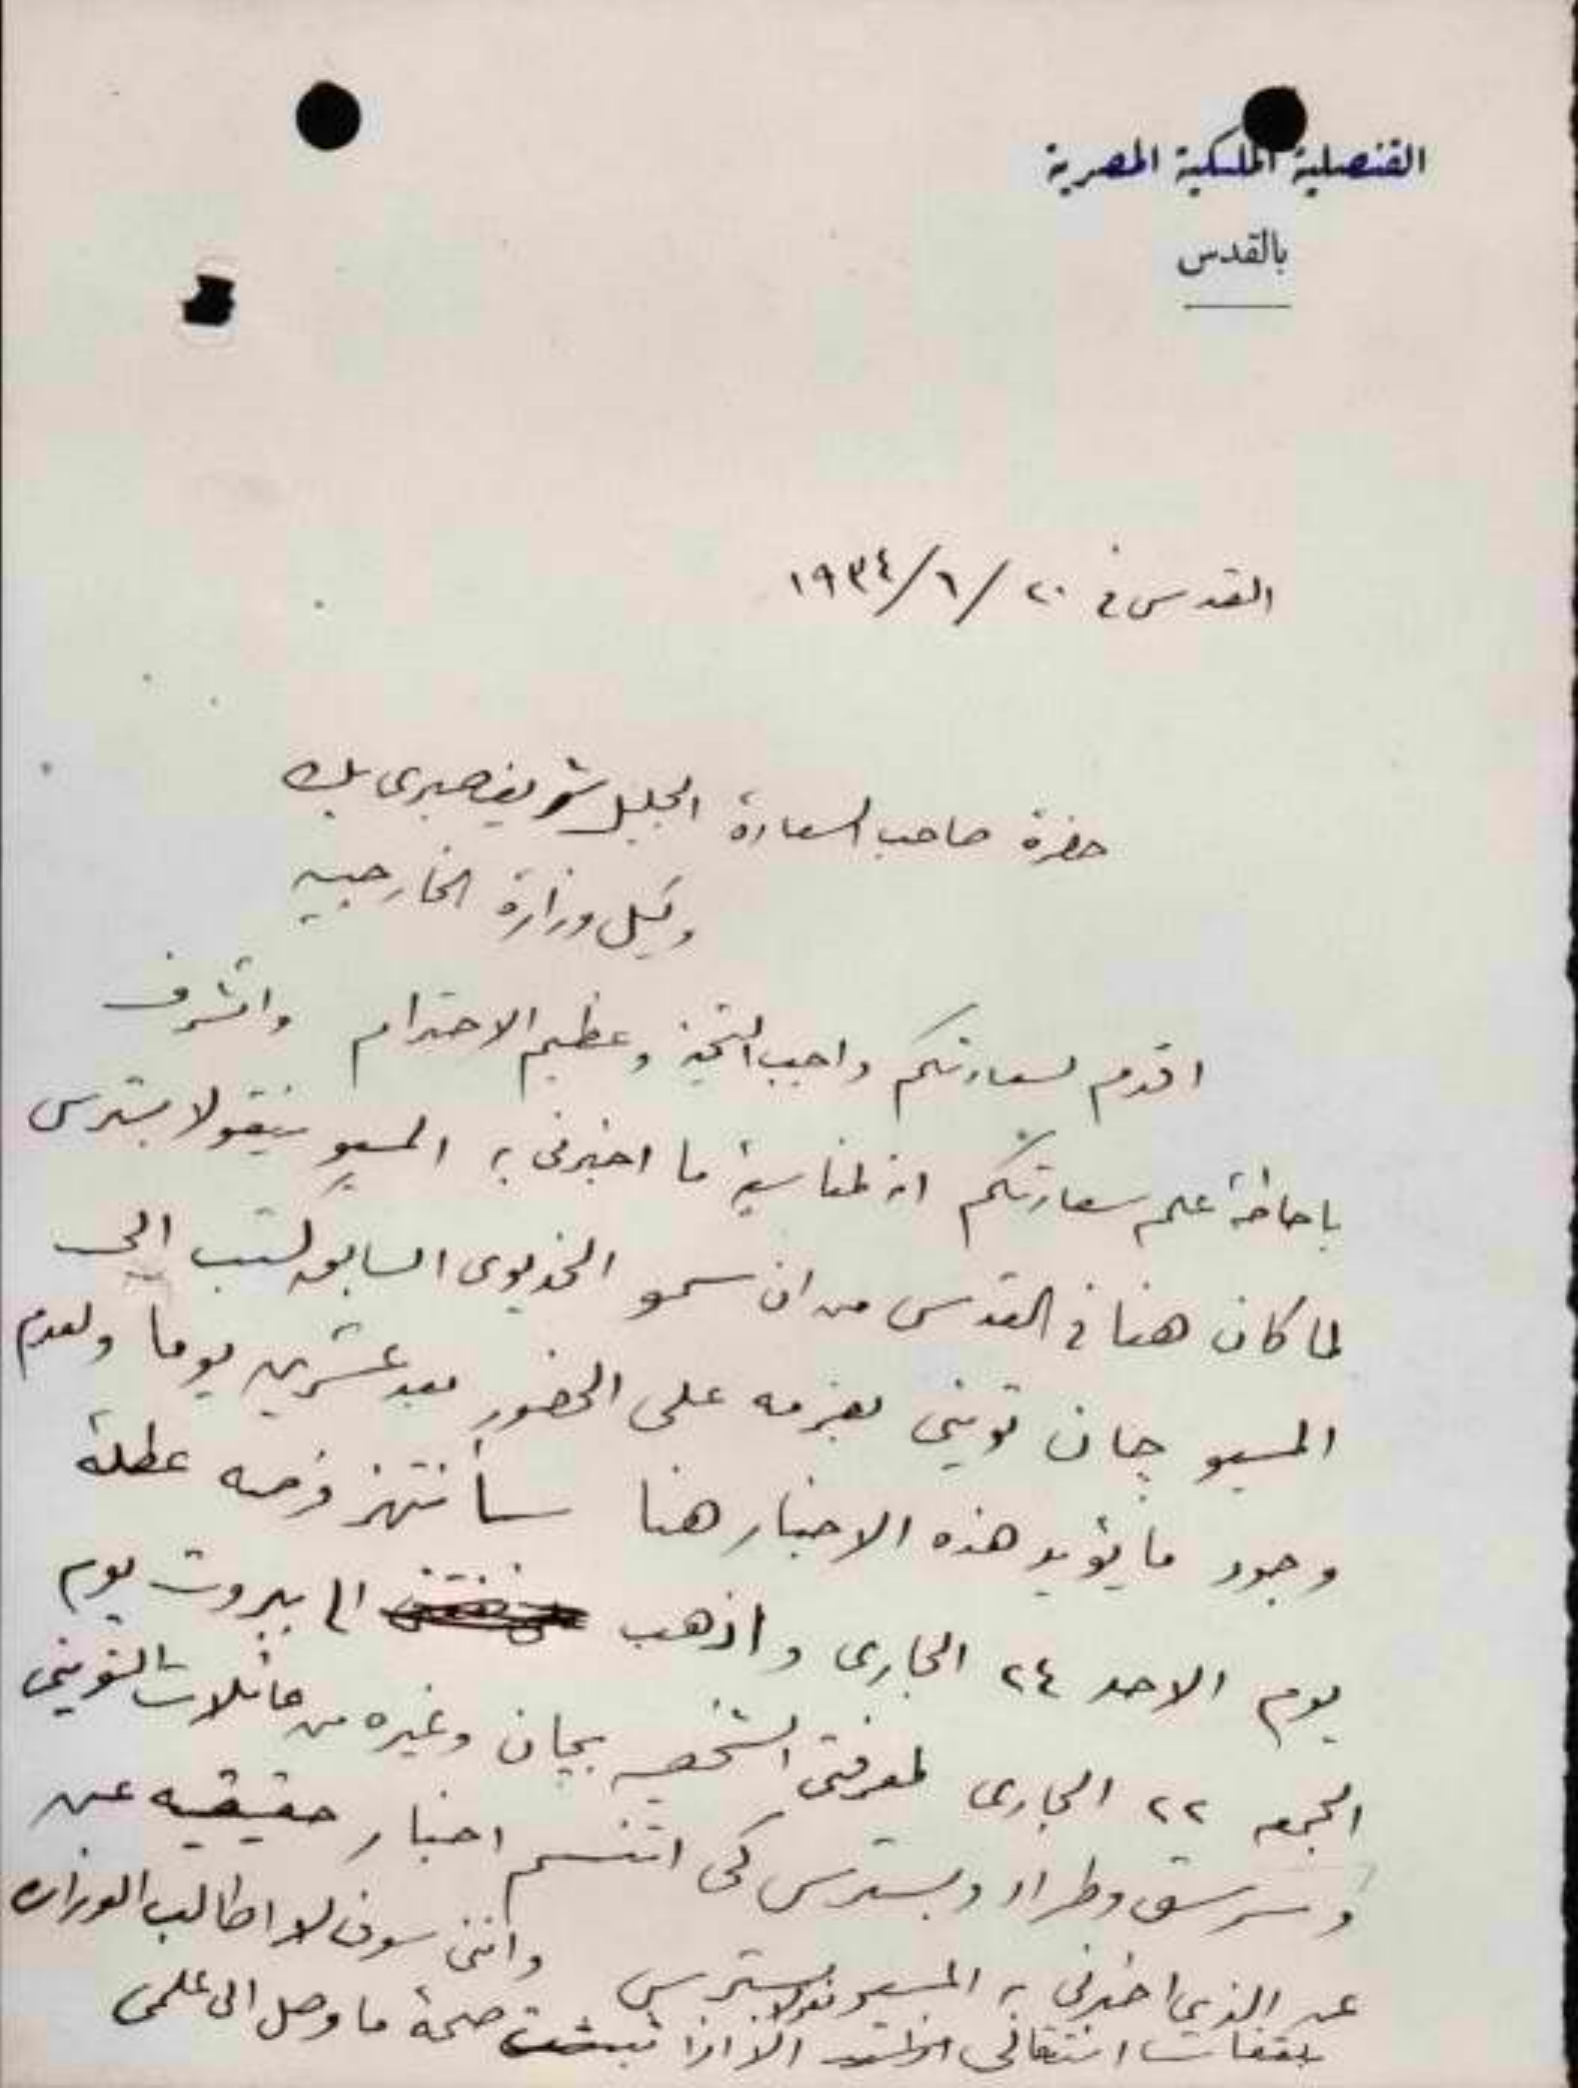 القنصلية الملكية المصرية
بالقدس
القدس في ٢٠/٦/١٩٣٤
حضرة صاحب السعادة الجليل شريف صبرى بك
وكيل وزارة الخارجيه
اقدم لسعادتكم واجب التحية وعظيم الاحترام واتشرف
باحاطة علم سعادتكم انه لمناسبة ما اخبرنى به المسيو نيقولا بسترس
لما كان هنا في القدس من ان سمو الخديوى السابق كتب الى
المسيو جان تويني بعزمه على الحضور بعد عشرين يوما ولعدم
وجود ما يؤيد هذه الاخبار هنا سأنتهز فرصه عطلة
يوم الاحد ٢٤ الجارى واذهب الى بيروت يوم
الجمعه ٢٢ الجارى لمعرفتى الشخصيه بجان وغيره من عائلات التوينى
وسرسق وطراد وبسترس كى اتنسم اخبار حقيقيه عن
عن الذى اخبرنى به المسيو نقولا بسترس واننى سوف لا اطالب الوزاره
بنفقات انتقالى الا اذا ثبتت صحة ما وصل الى علمى